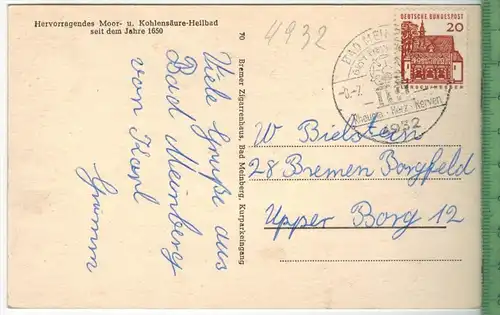 Hervorragendes Moor- u. Kohlensäure-Heilbad
seit dem Jahre 1650
4932
Viele Grüße aus
Bad Meinberg
von Karl
Grimm
70 Bremer Zigarrenhaus, Bad Meinberg, Kurparkeingang
DEUTSCHE BUNDESPOST
20
LORSCH · HESSEN
BAD MEIN
Rheuma · Herz · Nerven
4932
W Bielstein
28 Bremen Borgfeld
Upper Borg 12